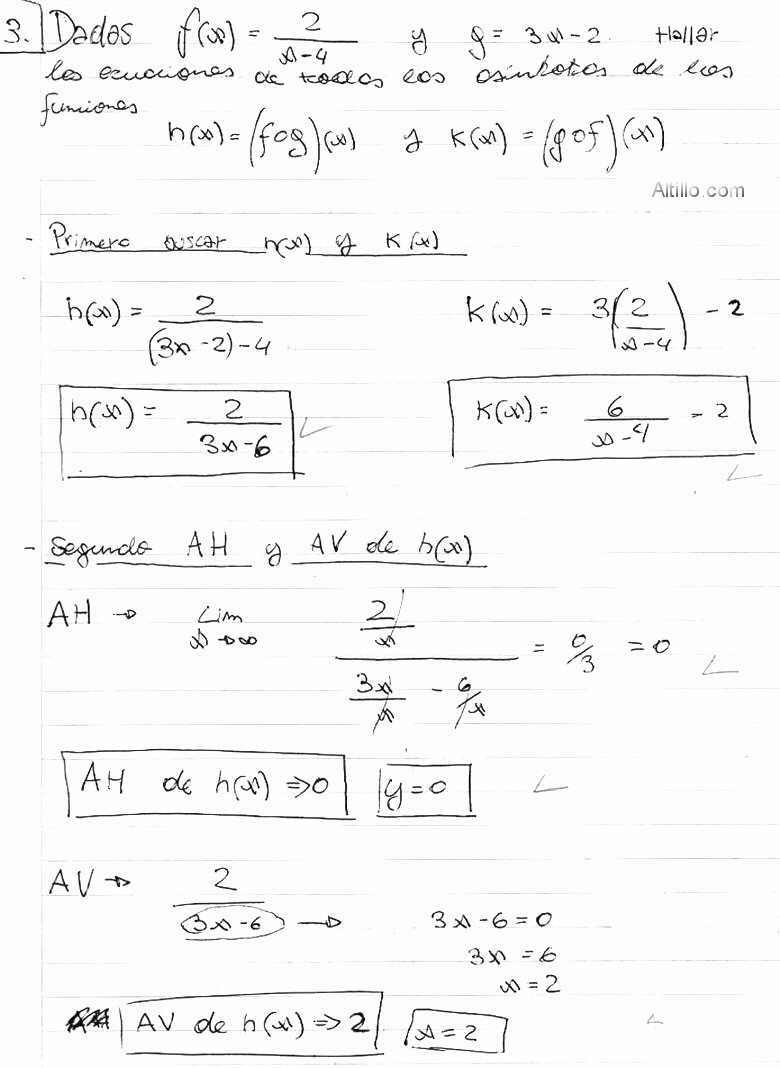 3. Dados f(x) = 2/(x-4) y g = 3x-2. Hallar
las ecuaciones de todas las asintotas de las
funciones
h(x) = (fog)(x) y K(x) = (gof)(x)
Altillo.com
- Primero buscar h(x) y K(x)
h(x) = 2/((3x-2)-4)
K(x) = 3(2/(x-4)) - 2
h(x) = 2/(3x-6)
K(x) = 6/(x-4) - 2
- Segundo AH y AV de h(x)
AH → Lim x→∞ (2/x)/(3x/x - 6/x) = 0/3 = 0
AH de h(x) ⇒ 0 y = 0
AV → 2/(3x-6) →
3x-6 = 0
3x = 6
x = 2
AV de h(x) ⇒ 2 x = 2